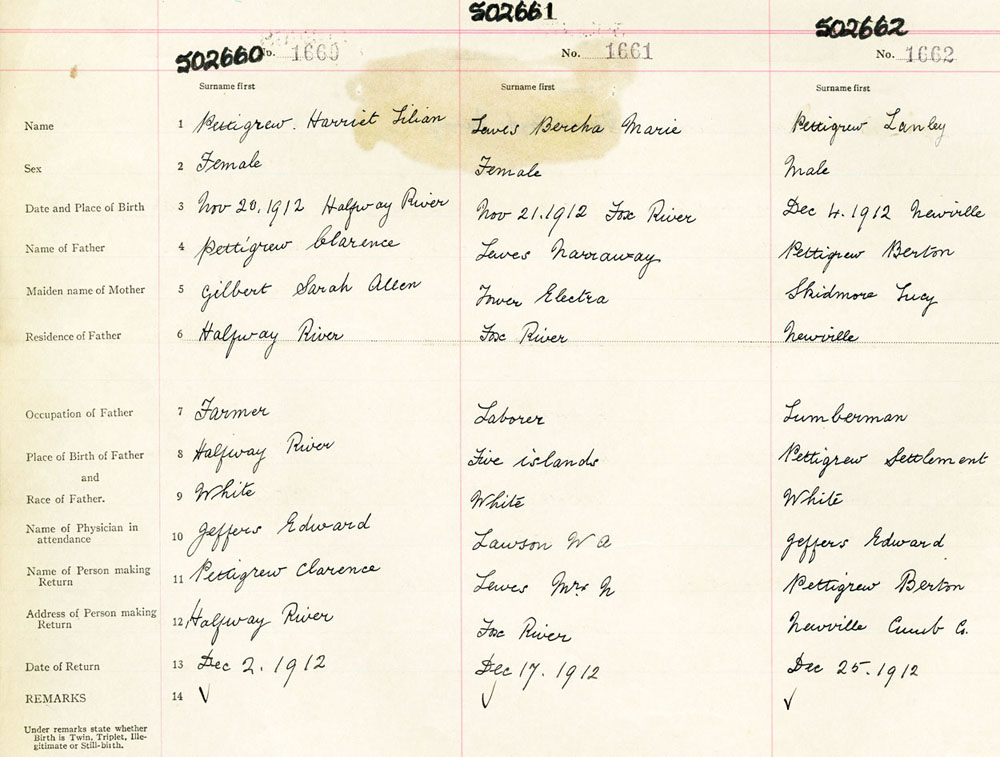 S02660 S02661 S02662
No. 1660 No. 1661 No. 1662
Surname first Surname first Surname first
Name 1 Pettigrew. Harriet Lilian Lewes Bertha Marie Pettigrew Lanley
Sex 2 Female Female Male
Date and Place of Birth 3 Nov 20, 1912 Halfway River Nov 21. 1912 Fox River Dec 4. 1912 Newville
Name of Father 4 Pettigrew Clarence Lewes Narraway Pettigrew Berton
Maiden name of Mother 5 Gilbert Sarah Allen Fower Electra Skidmore Lucy
Residence of Father 6 Halfway River Fox River Newville
Occupation of Father 7 Farmer Laborer Lumberman
Place of Birth of Father 8 Halfway River Five islands Pettigrew Settlement
and
Race of Father. 9 White White White
Name of Physician in
attendance 10 Jeffers Edward Lawson W A Jeffers Edward
Name of Person making
Return 11 Pettigrew Clarence Lewes Mrs N Pettigrew Berton
Address of Person making
Return 12 Halfway River Fox River Newville Cumb Co.
Date of Return 13 Dec 2. 1912 Dec 17. 1912 Dec 25. 1912
REMARKS 14 ✓ ✓ ✓
Under remarks state whether
Birth is Twin, Triplet, Ille-
gitimate or Still-birth.